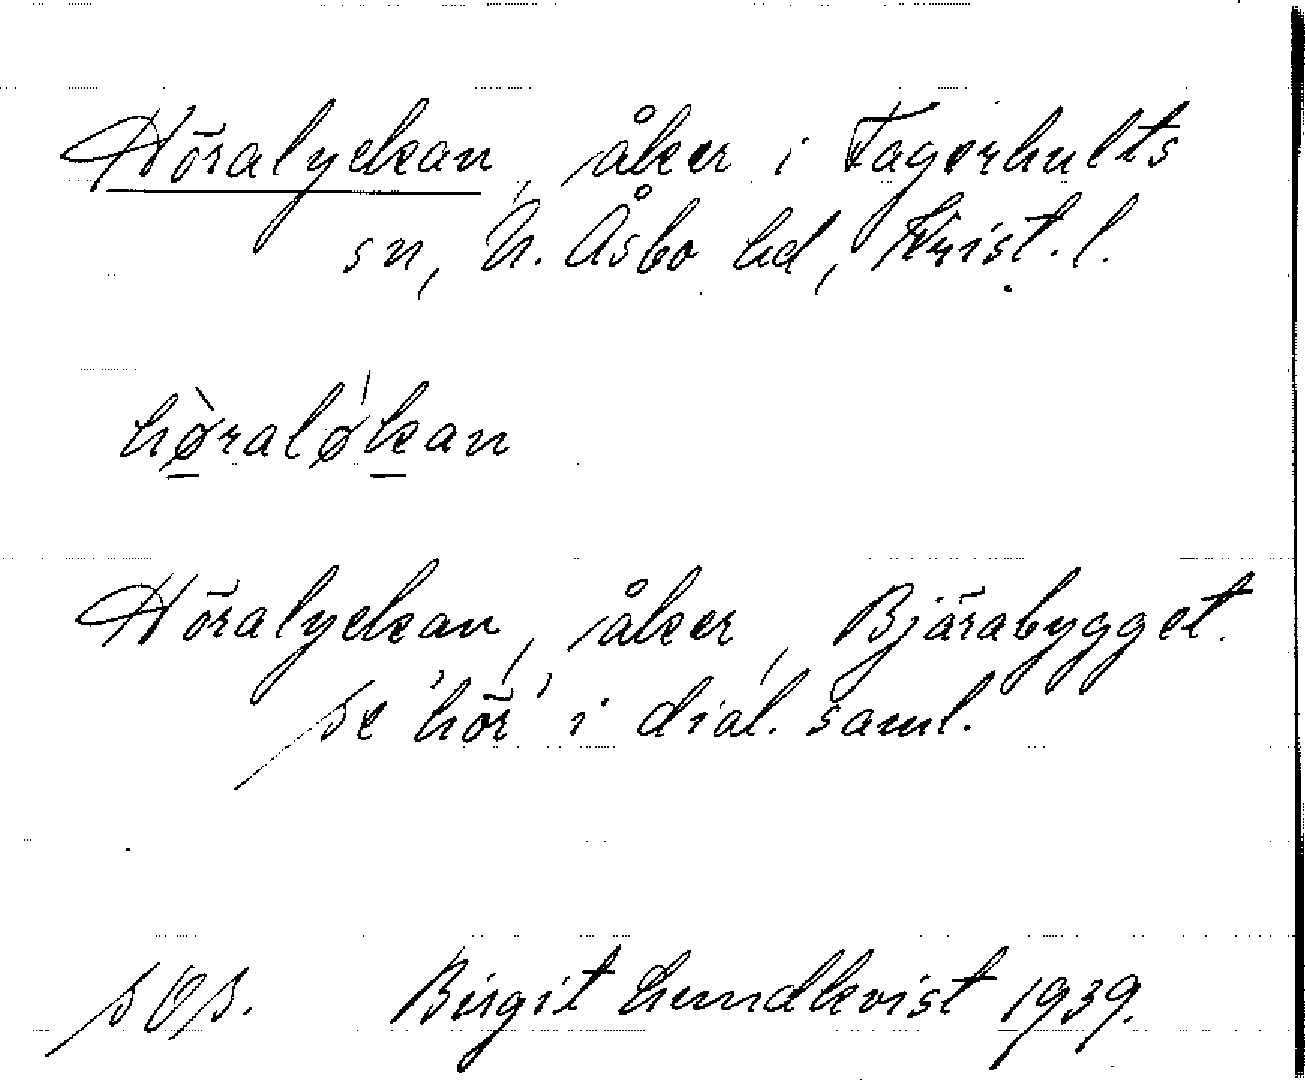 Höralyckan, åker i Fagerhults
sn, N. Åsbo hd, Krist. l.
hø̀ralø'kan
Höralyckan, åker, Bjärabygget.
se 'hör' i dial. saml.
Birgit Lundkvist 1939.